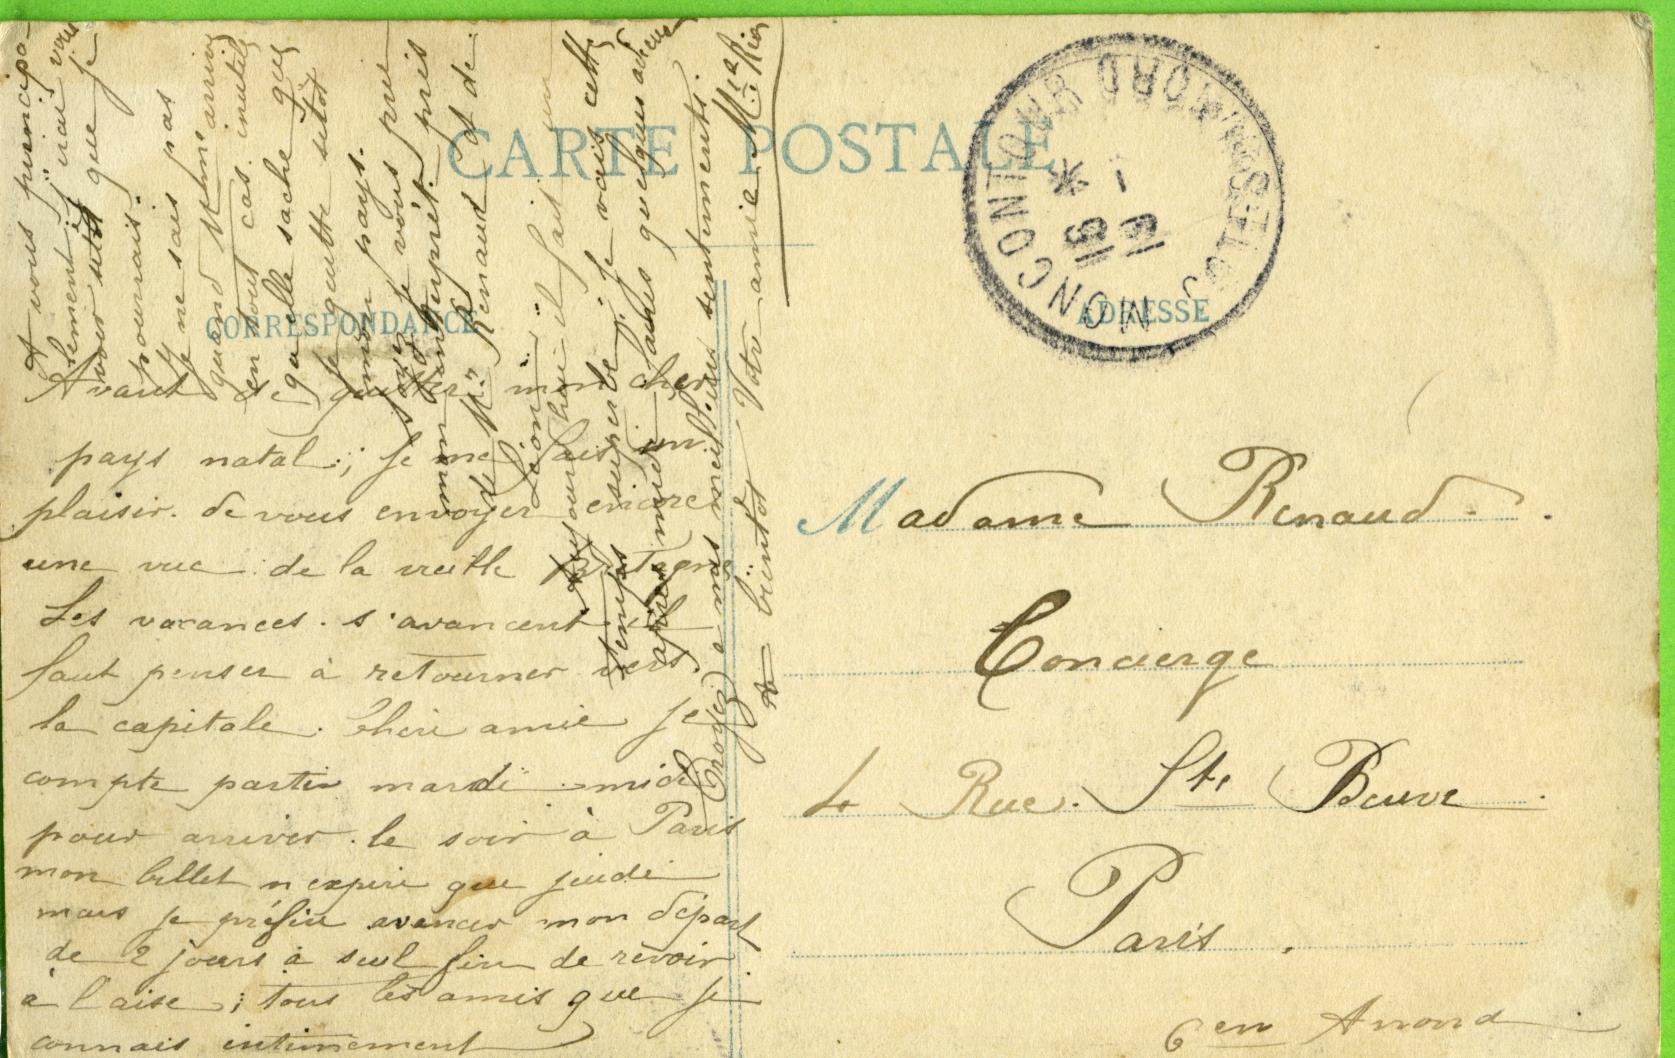 CARTE POSTALE
CORRESPONDANCE
ADRESSE
MONCONTOUR
COTES-DU-NORD
Avant de quitter mon cher
pays natal ; je me fais un
plaisir de vous envoyer encore
une vue de la vieille Bretagne
Les vacances s'avancent il
faut penser à retourner vers
la capitale. Chère amie je
compte partir mardi midi
pour arriver le soir à Paris
mon billet n'expire que jeudi
mais je préfère avancer mon départ
de 2 jours à seul fin de revoir
à l'aise ; tous les amis que je
connais intimement
A vous principa-
lement j'irai vous
voir sitôt que je
pourrais.
Je ne sais pas
quand Mme
en tout cas inutile
qu'elle sache que
je quitte sitôt
mon pays.
je vous prie
mon interprète près
de Mr Renaud et de
Léonie
Aujourd'hui il fait un
temps superbe je vais cette
après midi faire quelques adieux
Croyez à mes meilleurs sentiments.
A bientôt Votre amie
Madame Renaud
Concierge
4 Rue Ste Beuve
Paris
6en Arrond